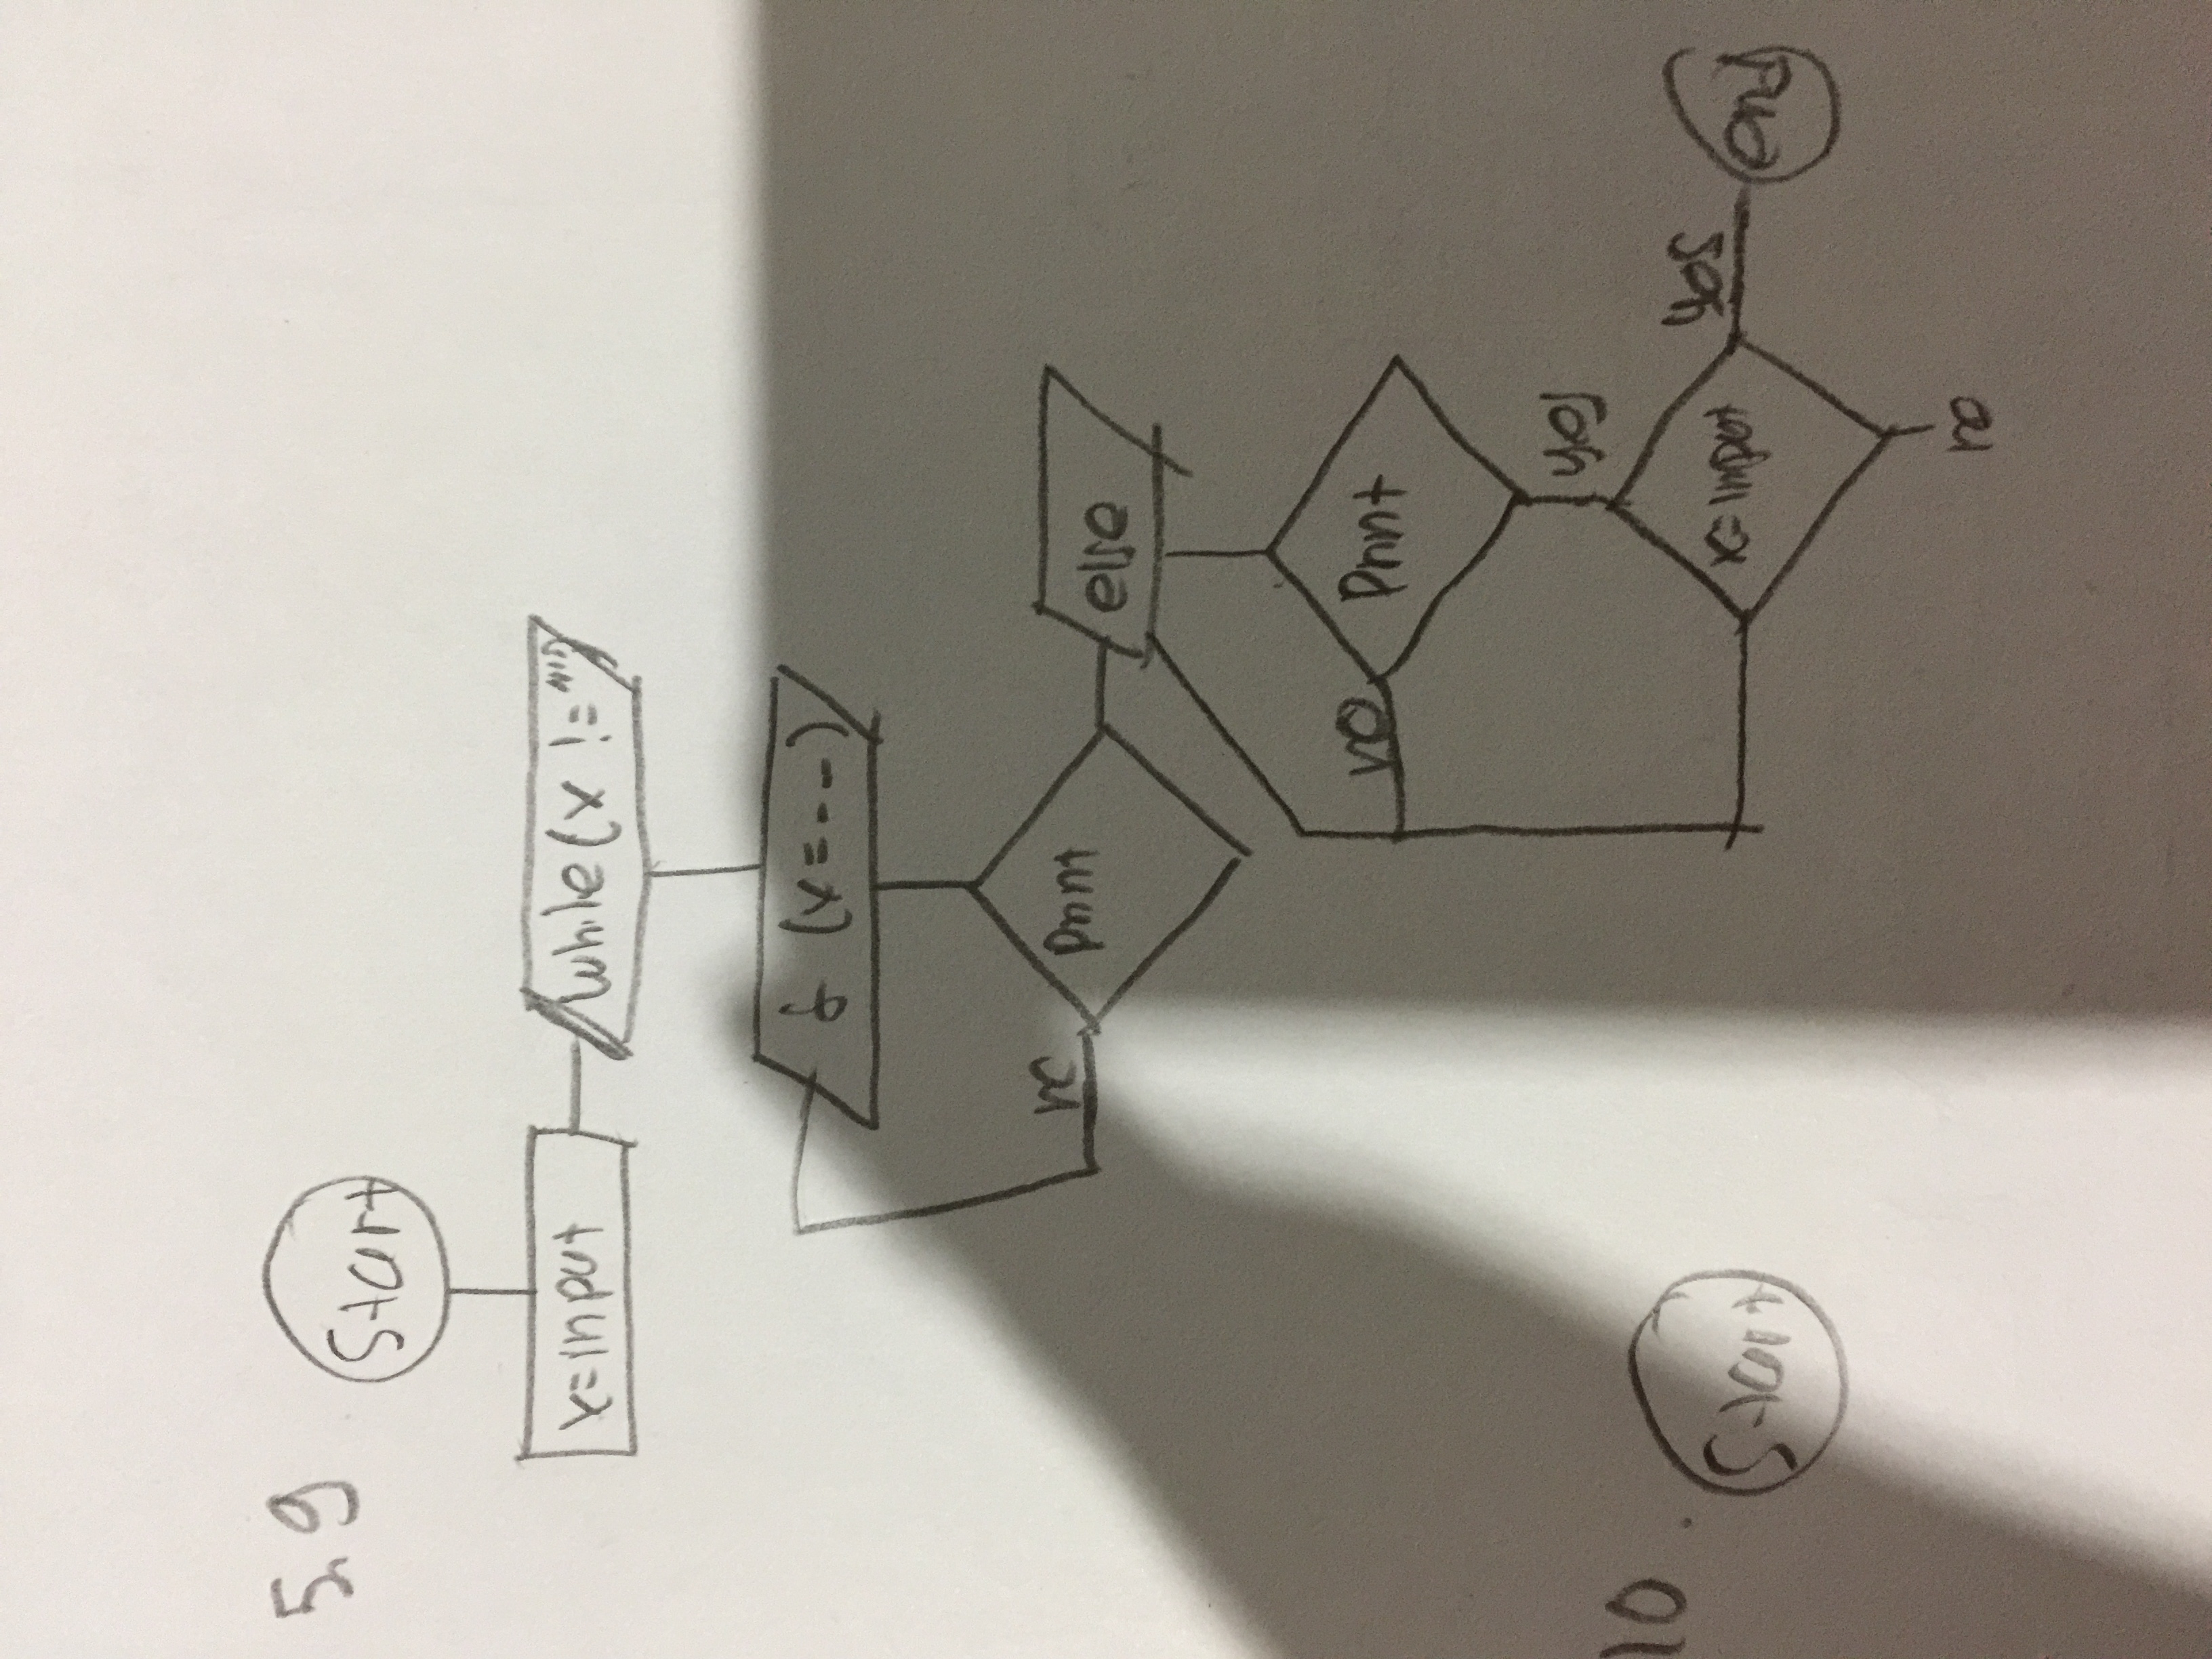 5.9
Start
x=input
while(x != "")
f (x=--)
no
print
else
no
print
yes
x=input
yes
end
no
10.
Start